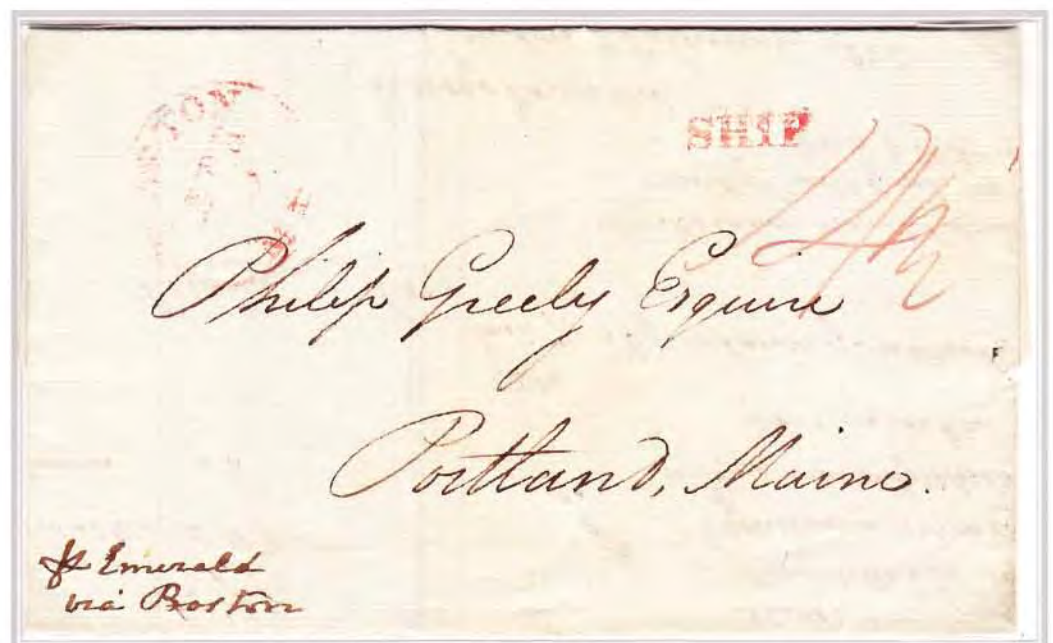 SHIP
14½
Philip Greely Esquire
Portland, Maine.
pr Emerald
via Boston